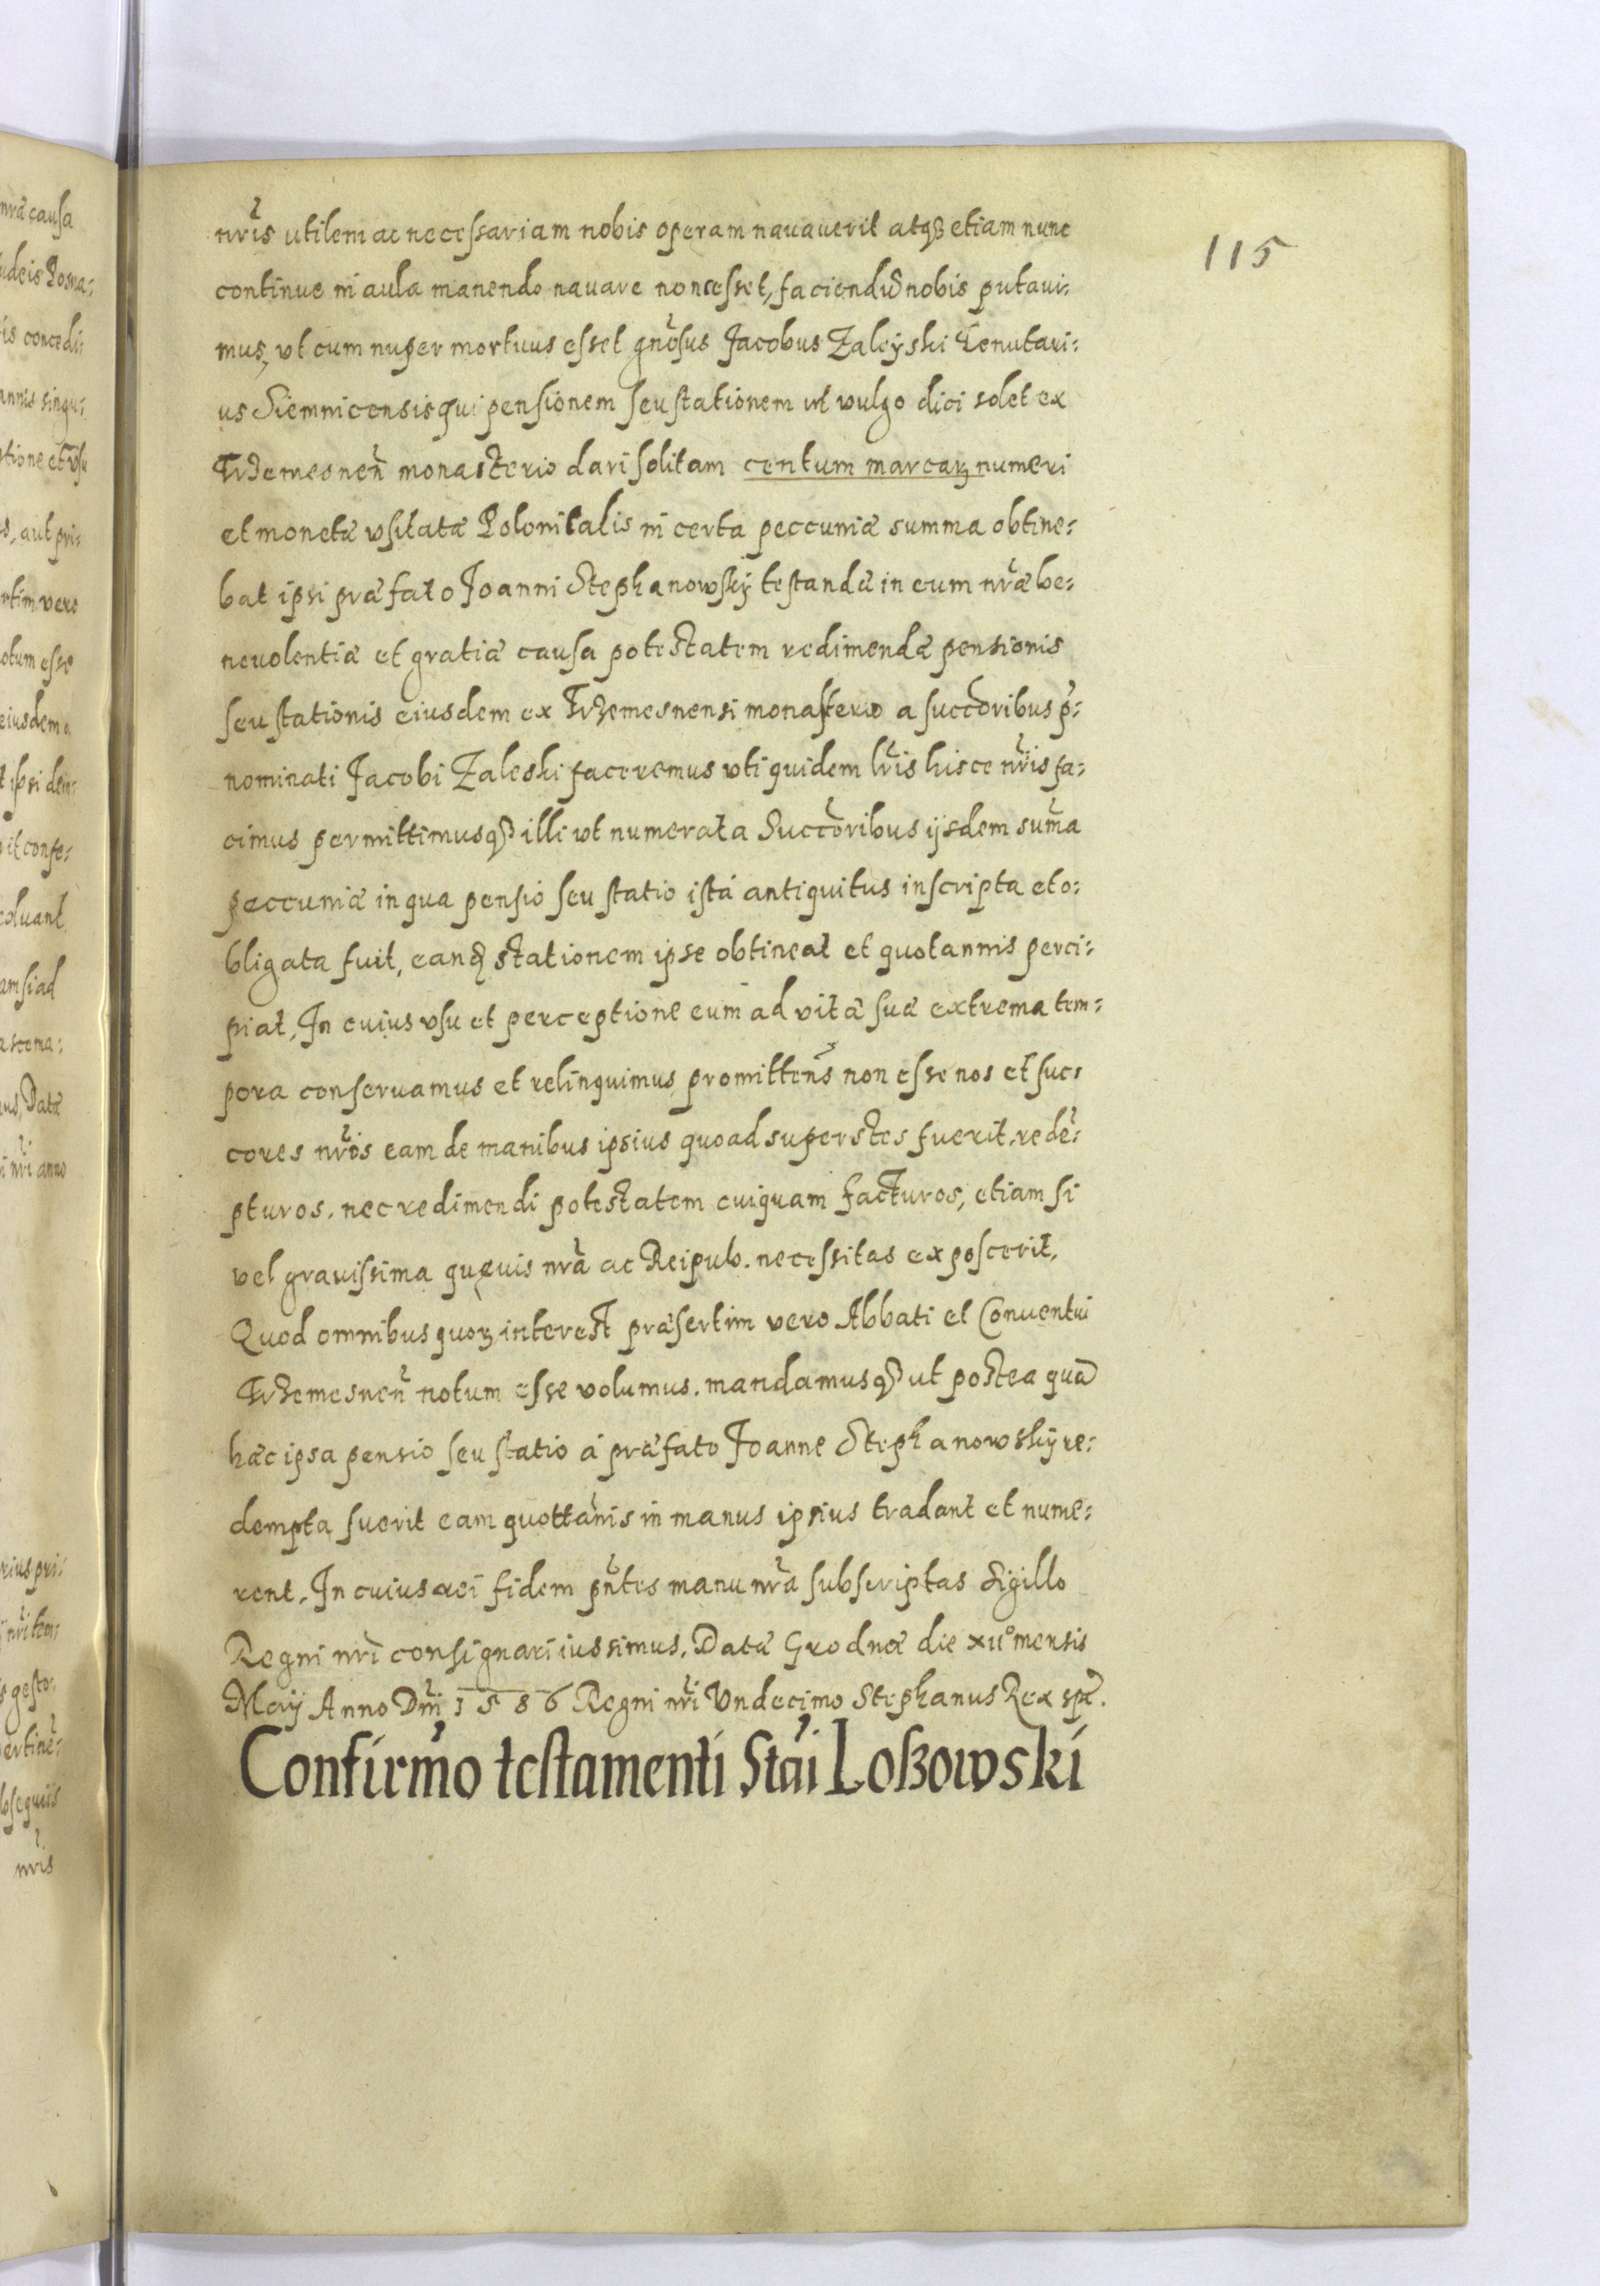 115
nr̃is utilem ac necessariam nobis operam nauauerit atq3 etiam nunc
continue in aula manendo nauare non cesset, faciendũ nobis putaui:
mus, vt cum nuper mortuus esset gnõsus Jacobus Zaleÿski Tenutari:
us Siemnicensis qui pensionem seu stationem ut vulgo dici solet ex
Trzemesneñ monasterio dari solitam centum marcarꝫ numeri
et monetæ vsitatæ Polonitalis in certa peccuniæ summa obtine:
bat ipsi præfato Joanni Stephanowskÿ testandæ in eum nr̃æ be:
neuolentiæ et gratiæ causa potestatem redimendæ pensionis
seu stationis eiusdem ex Trzemesnensi monasterio a succõribus p̃:
nominati Jacobi Zaleski faceremus vti quidem lr̃is hisce nr̃is fa:
cimus permittimusq3 illi vt numerata Succõribus ijsdem sum̃a
peccuniæ in qua pensio seu statio istá antiquitus inscripta et o:
bligata fuit, eanꝗ stationem ipse obtineat et quotannis perci:
piat, In cuius vsu et perceptione eum ad vitæ suæ extrema tem:
pora conseruamus et relinquimus promitteñs non esse nos et suc:
cores nr̃os eam de manibus ipsius quoad superstes fuerit, redẽ:
pturos. nec redimendi potestatem cuiquam facturos, etiam si
vel grauissima quęuis nr̃a ac Reipub. necessitas exposcerit.
Quod omnibus quorꝫ interest præsertim vero Abbati et Conuentui
Trzemesneñ notum esse volumus. mandamusq3 ut postea quã
hæc ipsa pensio seu statio á præfato Joanne Stephanowskÿ re:
dempta fuerit eam quottañis in manus ipsius tradant et nume:
rent. In cuius rei fidem pñtes manu nr̃a subscriptas Sigillo
Regni nr̃i consignari iussimus. Datæ Grodnæ die xii° mensis
Maÿ Anno Dñi 1586 Regni nr̃i Vndecimo Stephanus Rex spt̃.
Confirm̃o testamenti Stãi Loßowski